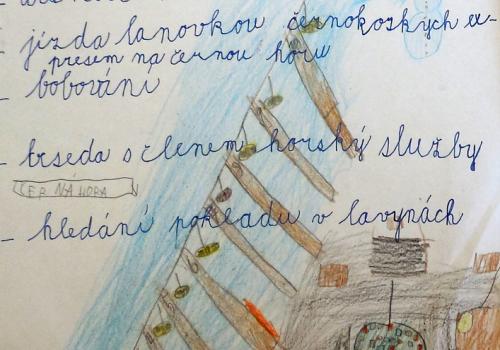 - jízda lanovkou černokozkých ex-
presem na černou horu
- bobování
- trseda s členem horský služby
ČERNÁ HORA
- hledání pokladu v lavynách